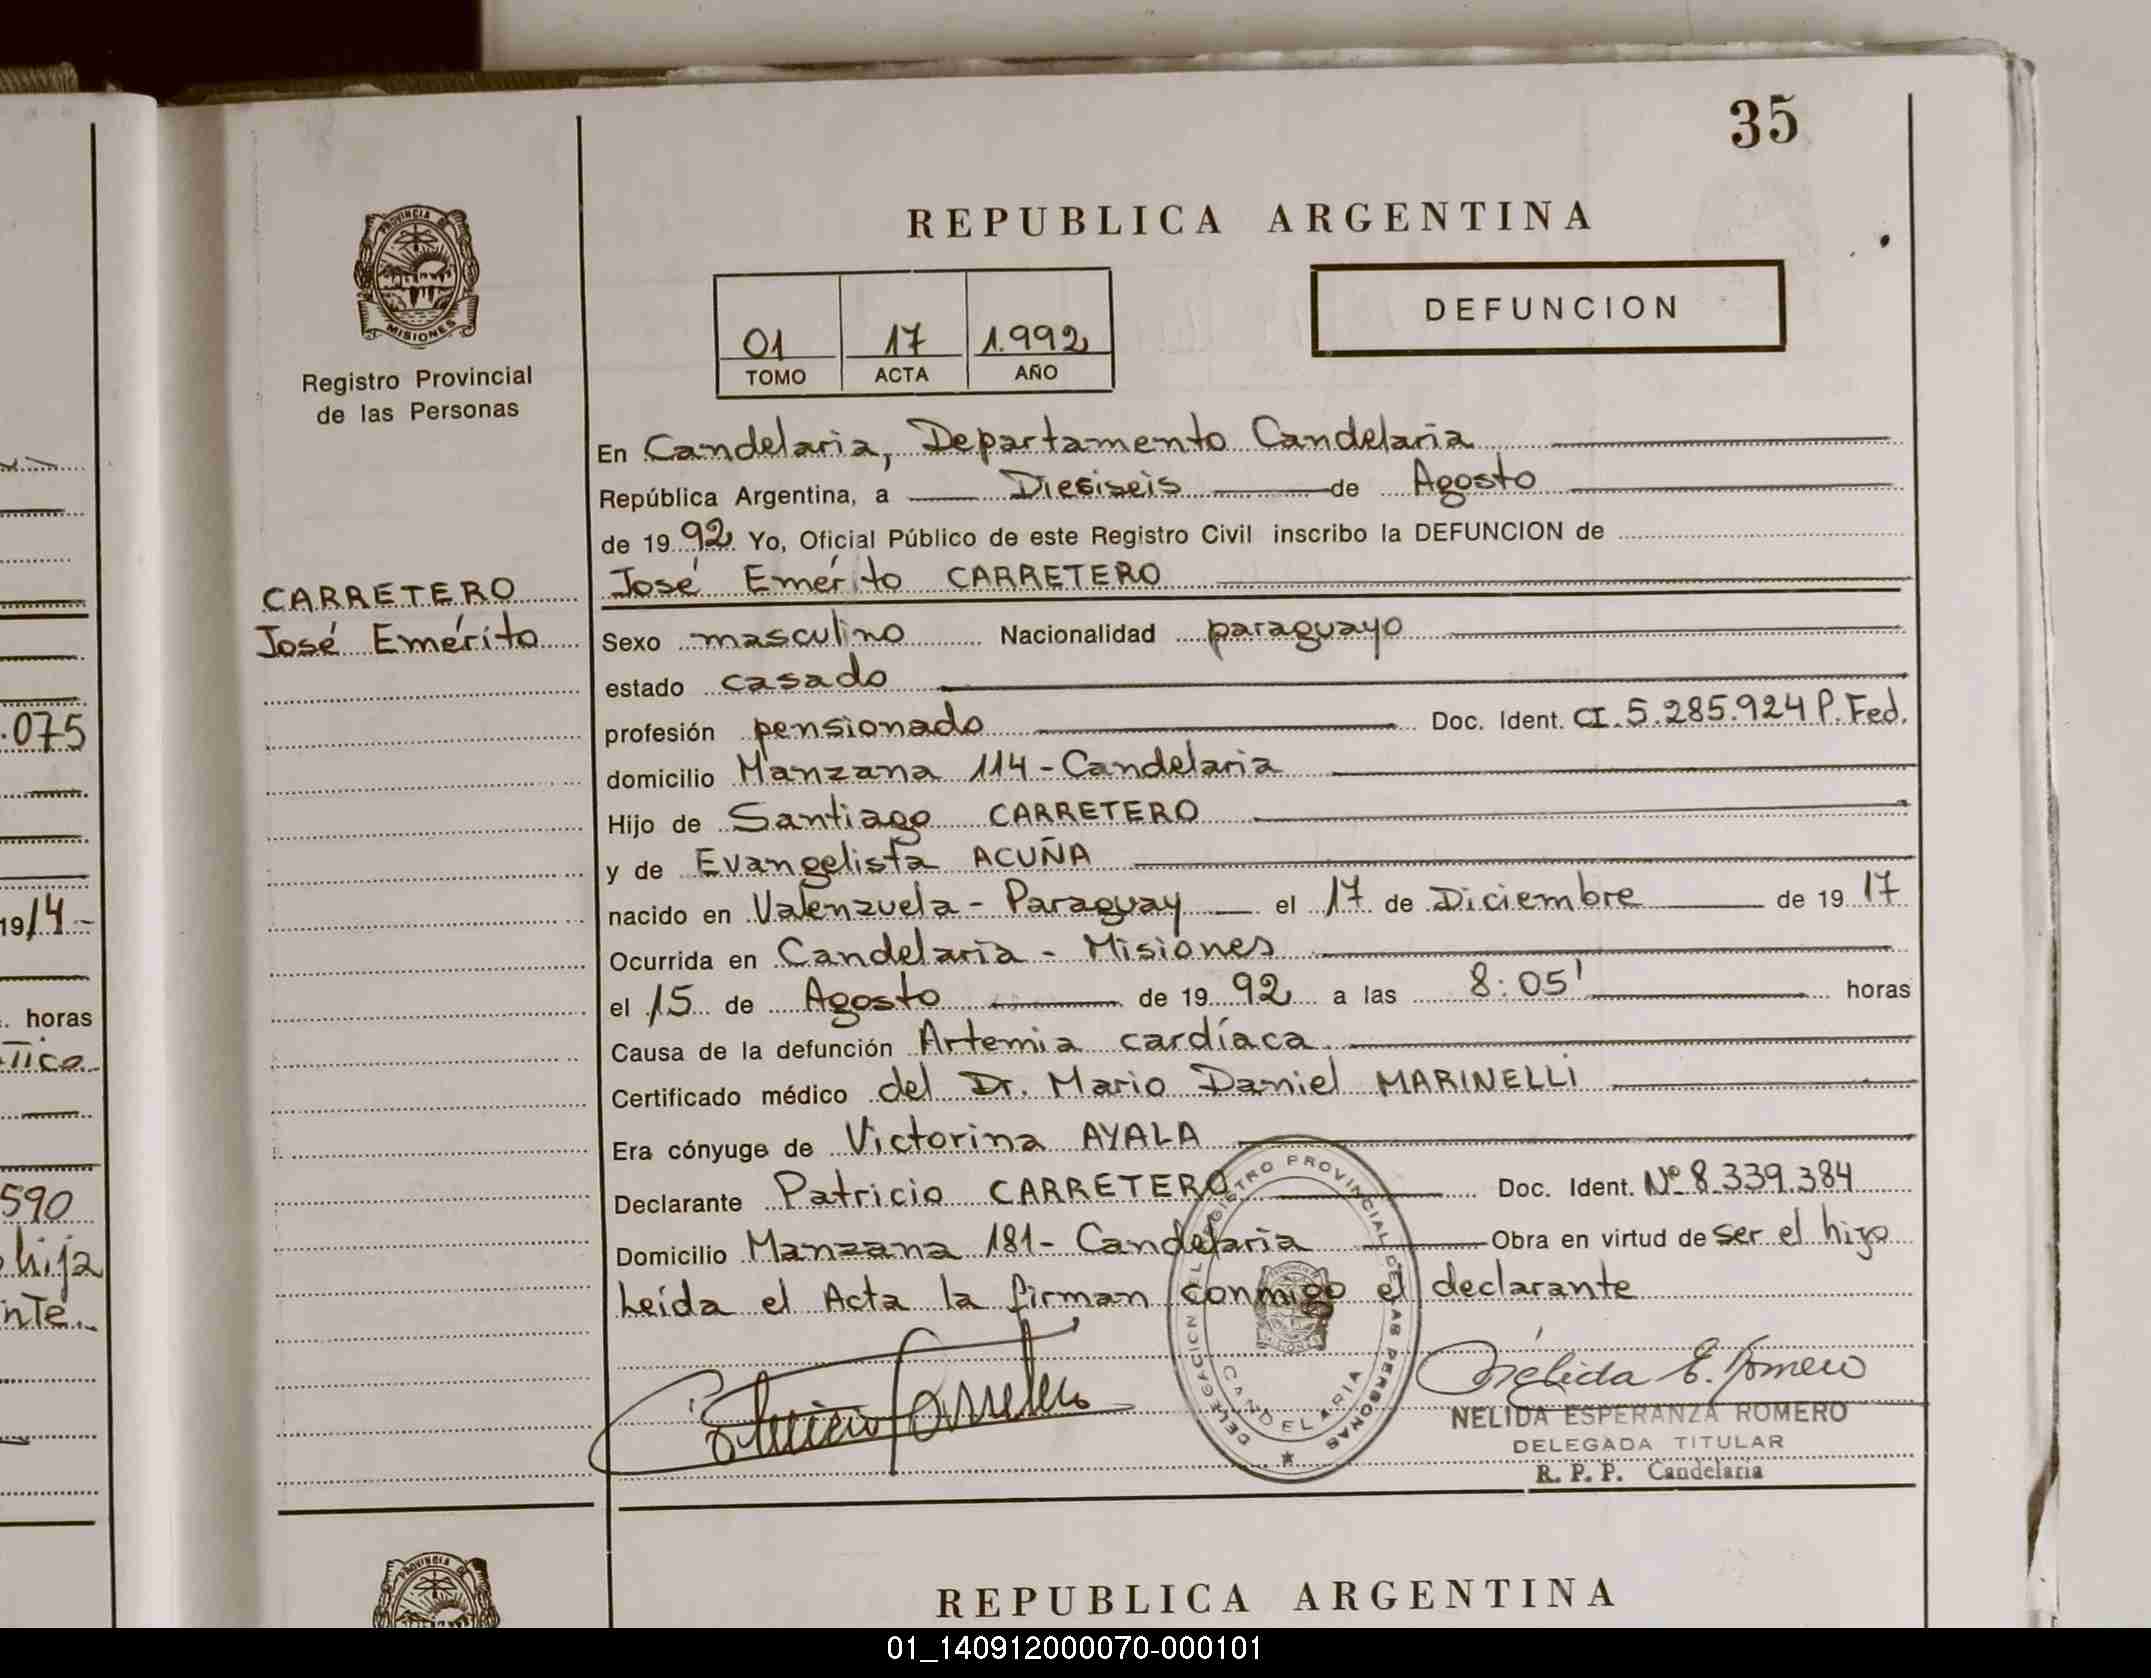 35
REPUBLICA ARGENTINA
PROVINCIA DE
MISIONES
Registro Provincial
de las Personas
01 17 1.992
TOMO ACTA AÑO
DEFUNCION
En Candelaria, Departamento Candelaria
República Argentina, a Diesiseis de Agosto
de 19 92 Yo, Oficial Público de este Registro Civil inscribo la DEFUNCION de
CARRETERO
José Emérito
José Emérito CARRETERO
Sexo masculino Nacionalidad paraguayo
estado casado
profesión pensionado Doc. Ident. CI. 5.285.924 P. Fed.
domicilio Manzana 114 - Candelaria
Hijo de Santiago CARRETERO
y de Evangelista ACUÑA
nacido en Valenzuela - Paraguay el 17 de Diciembre de 19 17
Ocurrida en Candelaria - Misiones
el 15 de Agosto de 19 92 a las 8:05' horas
Causa de la defunción Artemia cardíaca
Certificado médico del Dr. Mario Daniel MARINELLI
Era cónyuge de Victorina AYALA
Declarante Patricio CARRETERO Doc. Ident. Nº 8.339.384
Domicilio Manzana 181 - Candelaria Obra en virtud de ser el hijo
Leída el Acta la firman conmigo el declarante
Patricio Carretero
DELEGACION DEL REGISTRO PROVINCIAL DE LAS PERSONAS
CANDELARIA
Nélida E. Romero
NELIDA ESPERANZA ROMERO
DELEGADA TITULAR
R. P. P. Candelaria
.075
19 14 -
horas
590
hija
nTe.
PROVINCIA DE
REPUBLICA ARGENTINA
01_140912000070-000101